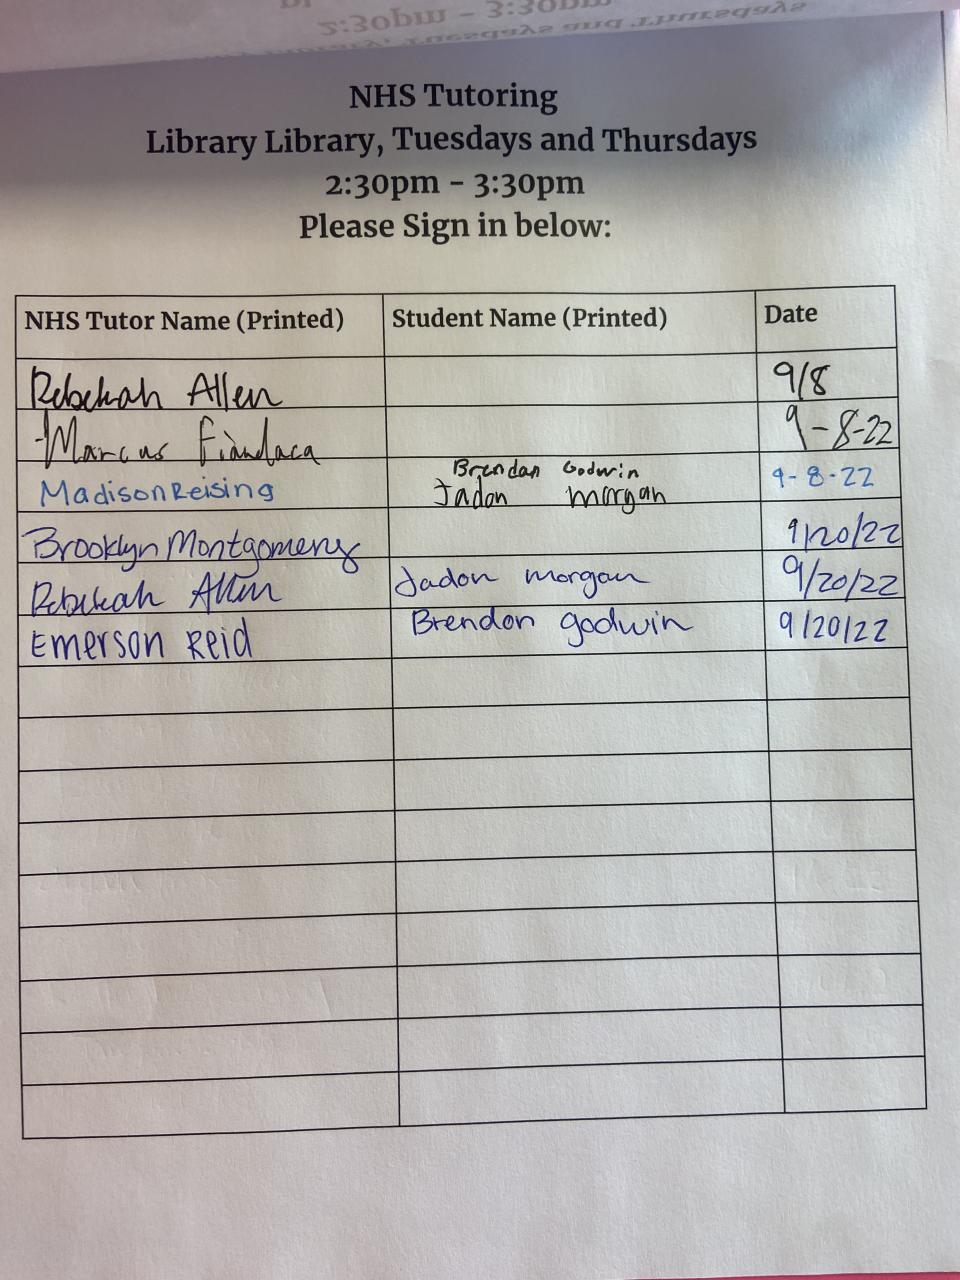 2:30pm - 3:30pm
NHS Tutoring
Library Library, Tuesdays and Thursdays
2:30pm - 3:30pm
Please Sign in below:
NHS Tutor Name (Printed) Student Name (Printed) Date
Rebekah Allen 9/8
Marcus Fiandaca 9-8-22
Brendan Godwin
Madison Reising Jadon morgan 9-8-22
Brooklyn Montgomery 9/20/22
Rebekah Allen Jadon morgan 9/20/22
Emerson Reid Brendon godwin 9/20/22